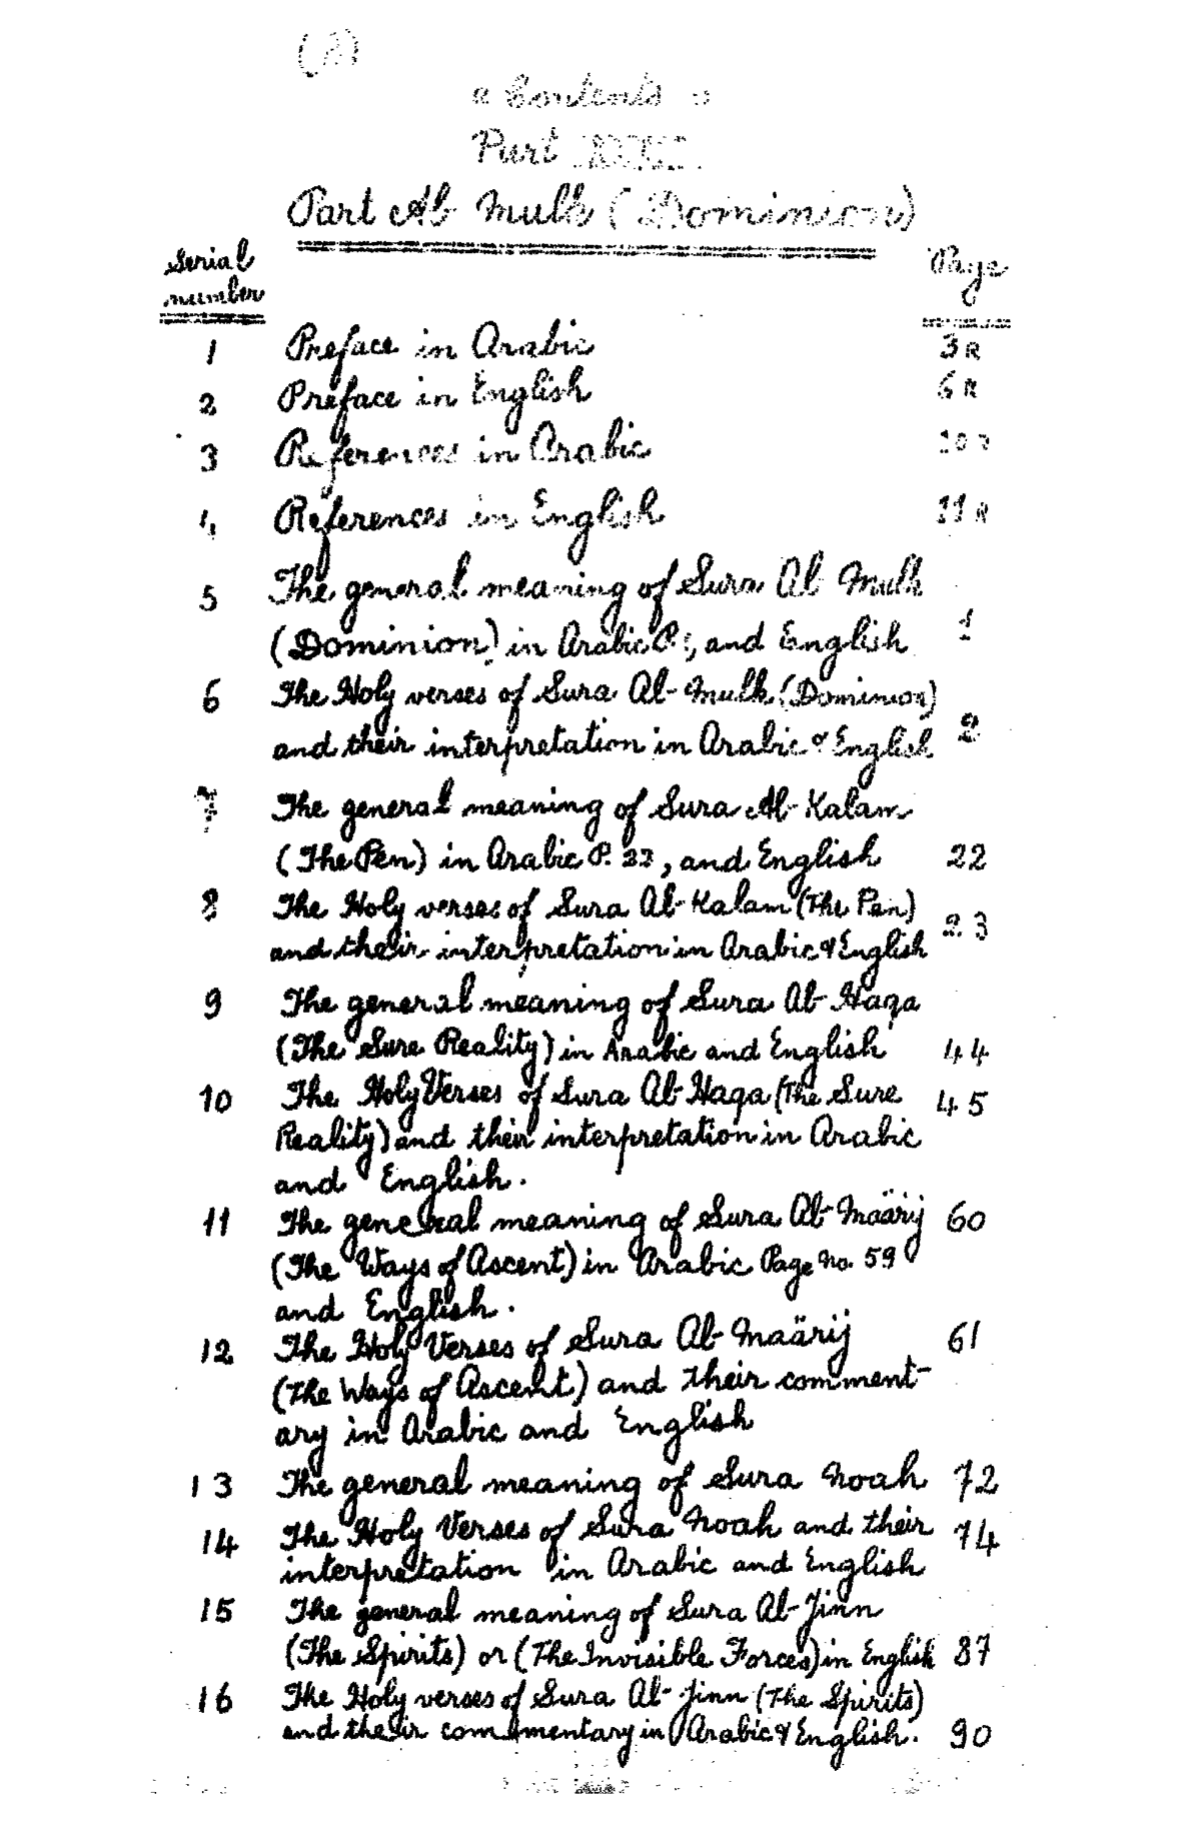 (2)
" Contents "
Part
Part Al-Mulk (Dominion)
Serial
number
Page
1 Preface in Arabic 3R
2 Preface in English 6R
3 References in Arabic
4 References in English 11R
5 The general meaning of Sura Al-Mulk
(Dominion) in Arabic P. 1, and English 1
6 The Holy verses of Sura Al-Mulk (Dominion)
and their interpretation in Arabic & English 2
7 The general meaning of Sura Al-Kalam
(The Pen) in Arabic P. 22, and English 22
8 The Holy verses of Sura Al-Kalam (The Pen)
and their interpretation in Arabic & English 23
9 The general meaning of Sura Al-Haqa
(The Sure Reality) in Arabic and English 44
10 The Holy Verses of Sura Al-Haqa (The Sure 45
Reality) and their interpretation in Arabic
and English.
11 The general meaning of Sura Al-Maärij 60
(The Ways of Ascent) in Arabic Page No. 59
and English.
12 The Holy Verses of Sura Al-Maärij 61
(The Ways of Ascent) and their comment-
ary in Arabic and English
13 The general meaning of Sura Noah 72
14 The Holy Verses of Sura Noah and their 74
interpretation in Arabic and English
15 The general meaning of Sura Al-Jinn
(The Spirits) or (The Invisible Forces) in English 87
16 The Holy verses of Sura Al-Jinn (The Spirits)
and their commentary in Arabic & English. 90